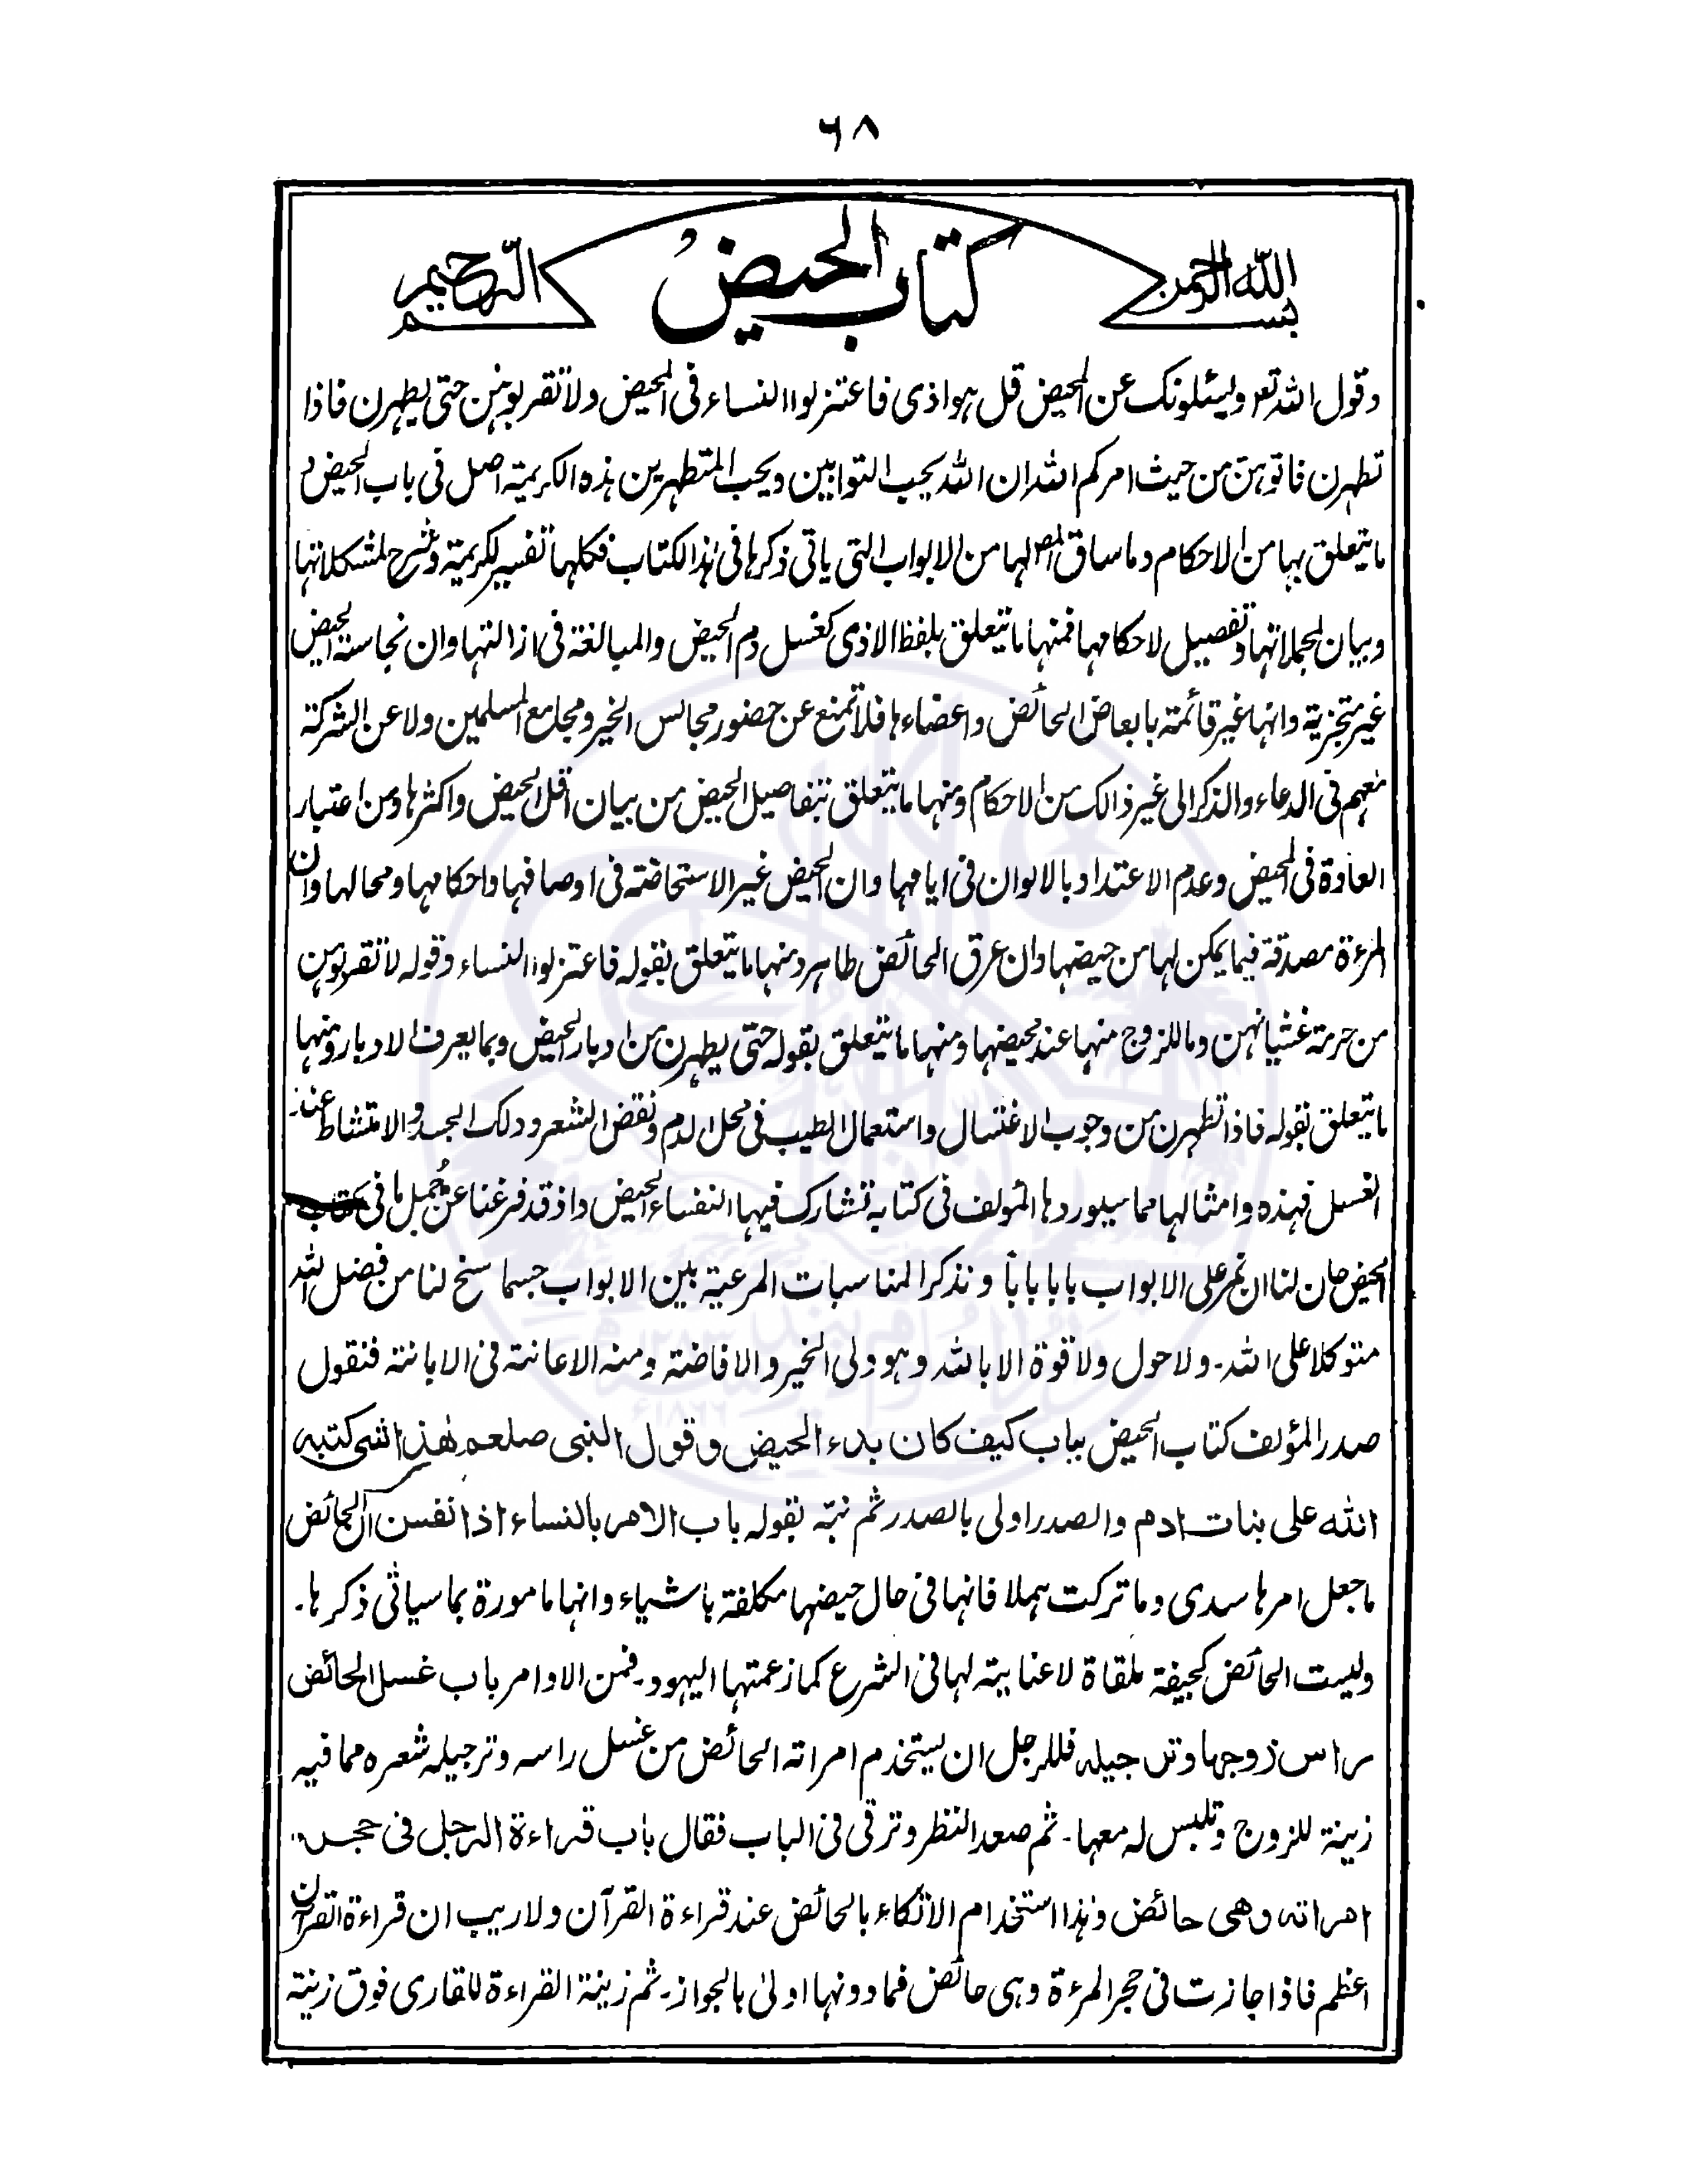 ٦٨
بسم الله الرحمن
كتاب الحيض
الرحيم
وقول الله تعو ويسئلونك عن المحيض قل هو اذى فاعتزلوا النساء فى المحيض ولا تقربوهن حتى يطهرن فاذا
تطهرن فاتوهن من حيث امركم الله ان الله يحب التوابين ويحب المتطهرين هذه الكريمة اصل فى باب الحيض و
ما يتعلق بها من الاحكام وما ساق المص لها من الابواب التى ياتى ذكرها فى هذا الكتاب فكلها تفسير للكريمة وشرح لمشكلاتها
وبيان لمجملاتها وتفصيل لاحكامها فمنها ما يتعلق بلفظ الاذى كغسل دم الحيض والمبالغة فى ازالتها وان نجاسة الحيض
غير متجزية وانها غير قائمة بابعاض الحائض واعضاءها فلا تمنع عن حضور مجالس الخير ومجامع المسلمين ولا عن الشركة
معهم فى الدعاء والذكر الى غير ذالك من الاحكام ومنها ما يتعلق بتفاصيل الحيض من بيان اقل الحيض واكثرها ومن اعتبار
العادة فى الحيض وعدم الاعتداد بالالوان فى ايامها وان الحيض غير الاستحاضة فى اوصافها واحكامها ومحالها وان
المرءة مصدقة فيما يمكن لها من حيضها وان عرق الحائض طاهر ومنها ما يتعلق بقوله فاعتزلوا النساء وقوله لا تقربوهن
من حرمة غشيانهن وما للزوج منها عند محيضها ومنها ما يتعلق بقوله حتى يطهرن من ادبار الحيض وبما يعرف الادبار ومنها
ما يتعلق بقوله فاذا تطهرن من وجوب الاغتسال واستعمال الطيب فى محل الدم ونقض الشعر ودلك الجسد والامتشاط عند
الغسل فهذه وامثالها مما سيوردها المولف فى كتابه تشارك فيها النفساء الحيض واذ قد فرغنا عن جُمل ما فى كتاب
الحيض حان لنا ان نمر على الابواب بابا باباً ونذكر المناسبات المرعية بين الابواب حسبما سنح لنا من فضل الله
متوكلا على الله۔ ولا حول ولا قوة الا بالله وهو ولى الخير والافاضة ومنه الاعانة فى الابانة فنقول
صدر المؤلف كتاب الحيض بباب كيف كان بدء الحيض وقول النبى صلعم هذا شى كتبه
الله على بنات ادم والصدر اولى بالصدر ثم نبّه بقوله باب الامر بالنساء اذا نفسن ان الحائض
ما جعل امرها سدى وما تركت هملا فانها فى حال حيضها مكلفة باشياء وانها مامورة بما سياتى ذكرها۔
وليست الحائض كجيفة ملقاة لا عناية لها فى الشرع كما زعمتها اليهود۔ فمن الاوامر باب غسل الحائض
راس زوجها وترجيله فللرجل ان يستخدم امراته الحائض من غسل راسه وترجيله شعره مما فيه
زينة للزوج وتلبس له معها۔ ثم صعد النظر وترقى فى الباب فقال باب قراءة الرجل فى حجر
امراته وهى حائض وهذا استخدام الاتكاء بالحائض عند قراءة القرآن ولا ريب ان قراءة القران
اعظم فاذا جازت فى حجر المرءة وهى حائض فمادونها اولىٰ بالجواز۔ ثم زينة القراءة للقارى فوق زينة